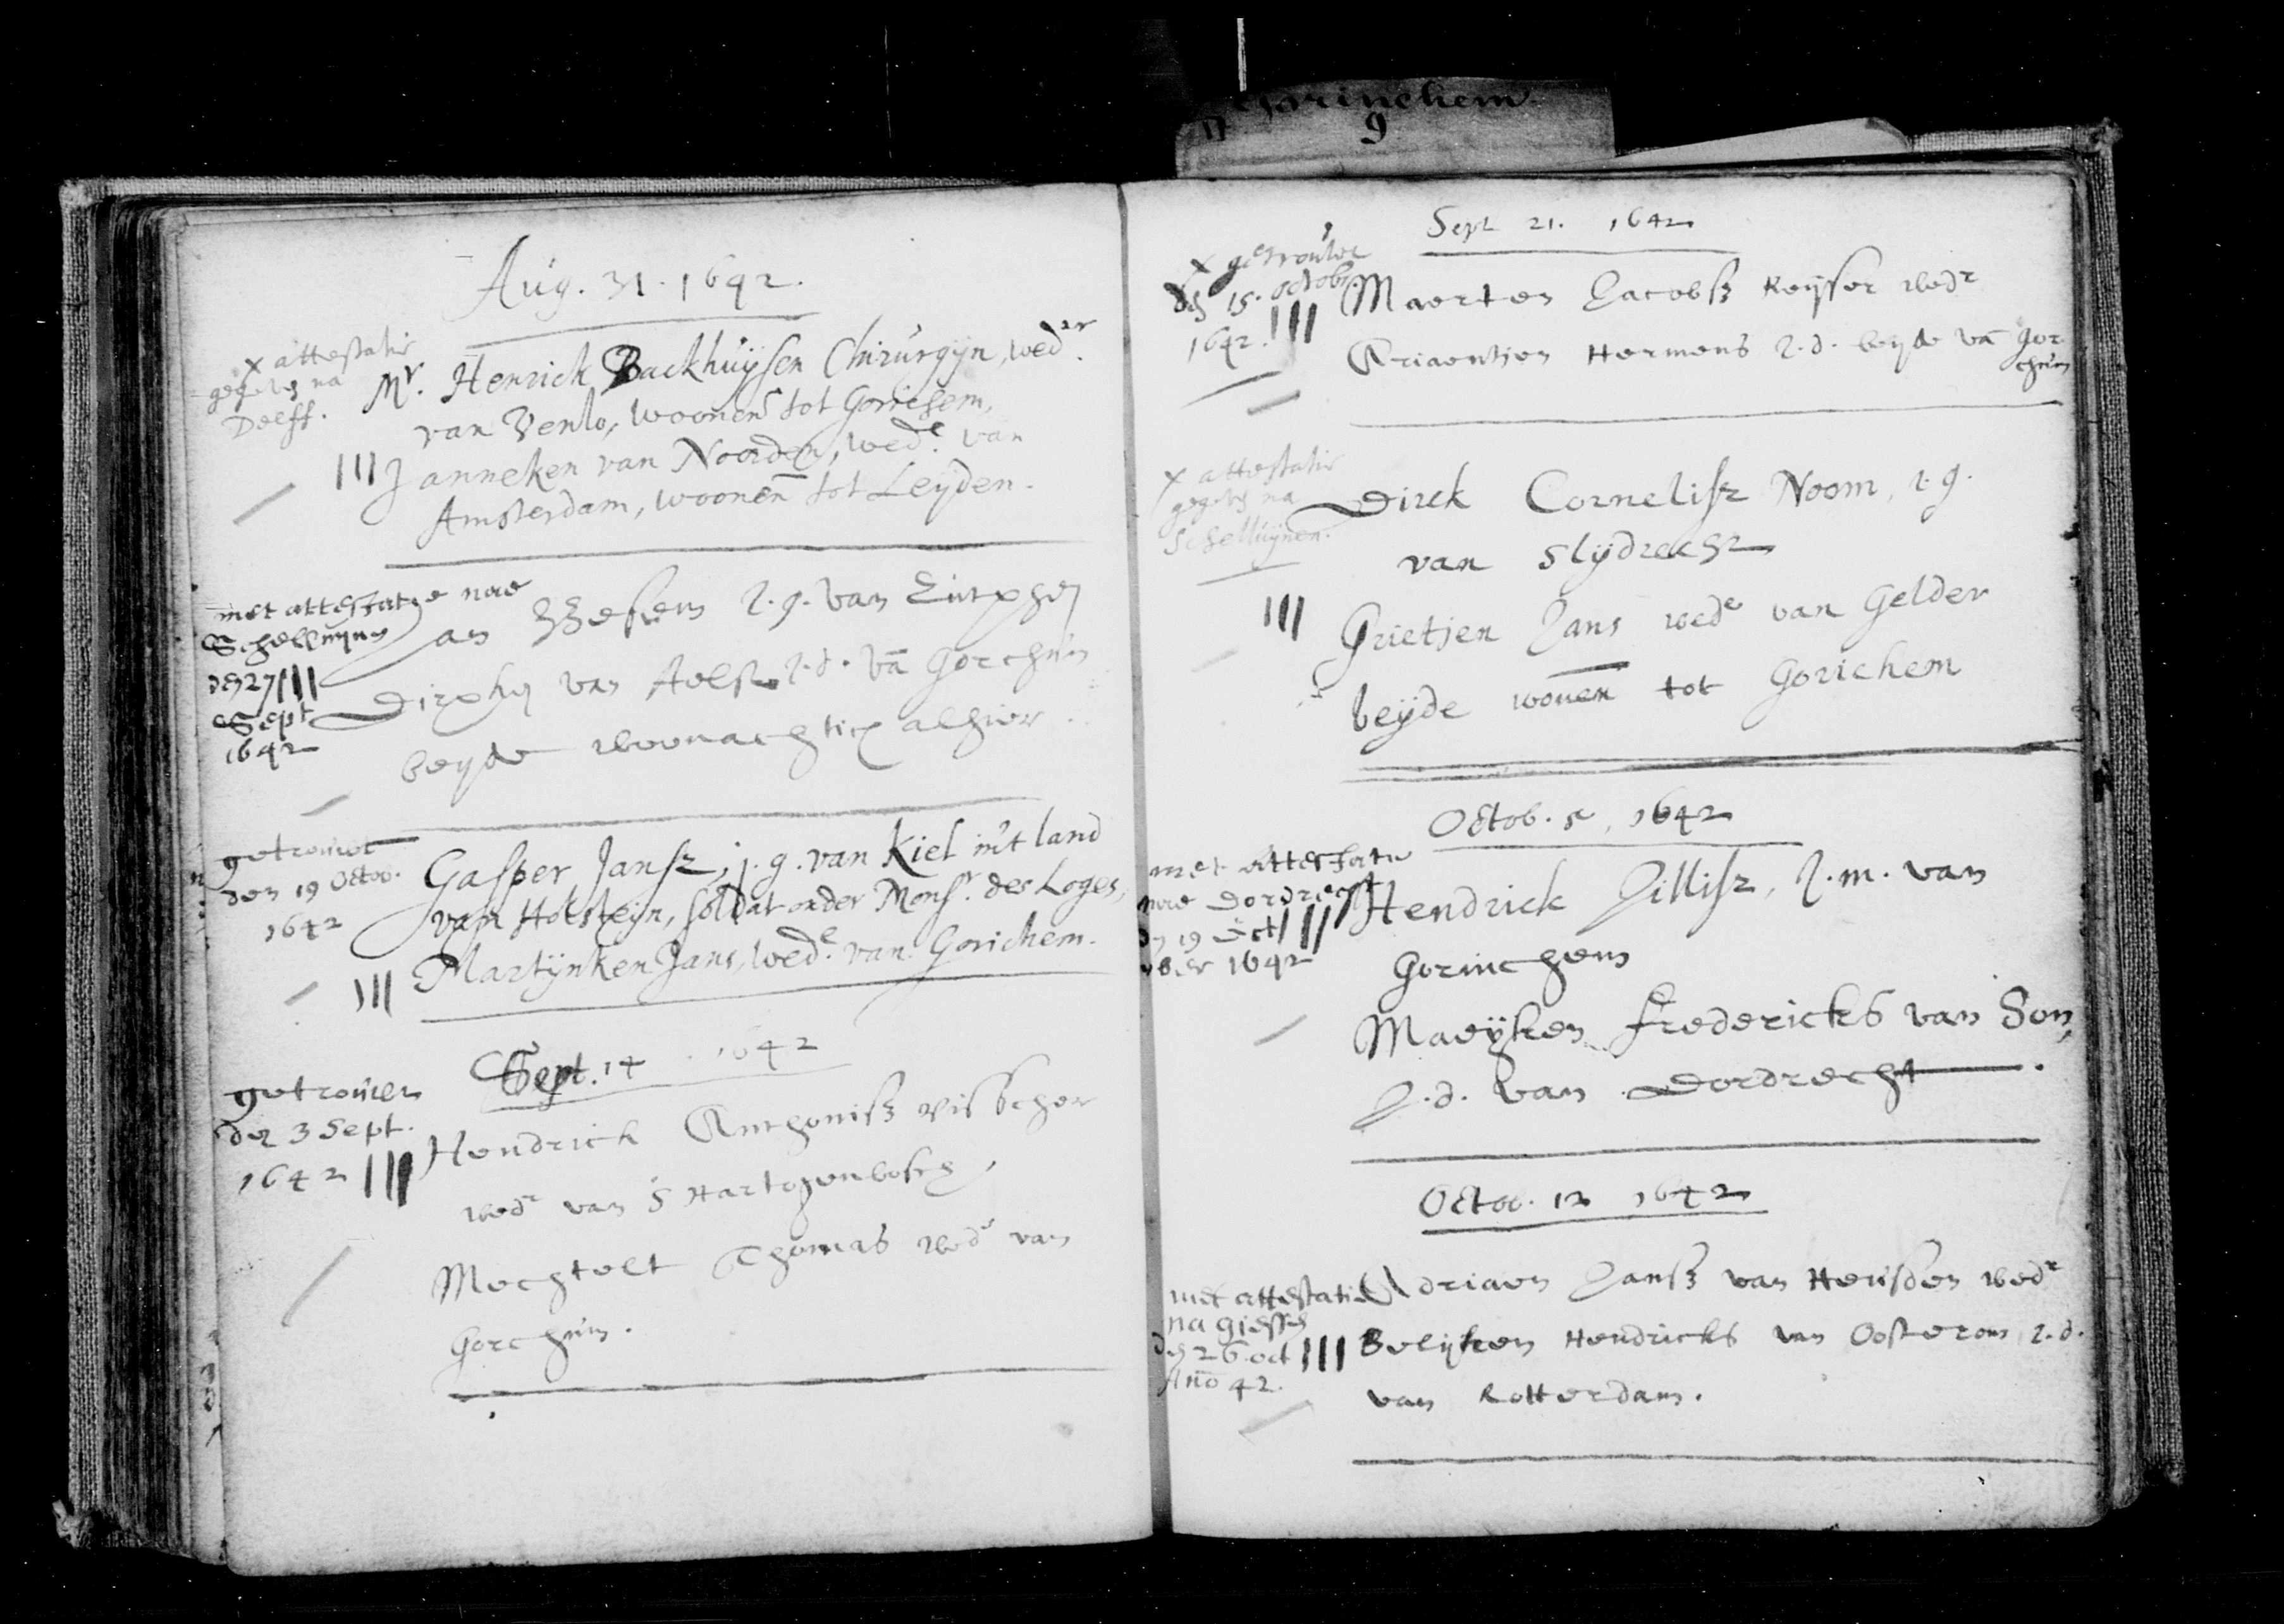 Gorinchem
9
Aug. 31. 1642.
x attestatie
gegevē na
Delff.
Mr. Henrick Backhuÿsen Chirurgijn, wedr.
van Venlo, woonen tot Gorichem,
III Janneken van Noorden, wede. van
Amsterdam, woonen tot Leÿden.
met attestatye nae
Schellunen
den 27 III
Sept
1642
Jan Wesem J.g. van Zutphen
Dirxken van Aelst J.d. vā Gorchum
beyde woonachtich alhier
getrouwt
den 19 Octob.
1642
Gasper Jansz, j.g. van Kiel in't land
van Holsteijn, soldat onder Monsr. des Loges,
III Martijnken Jans, wede. van Gorichem.
Sept. 14 1642
getrouwt
den 3 Sept.
1642 III
Hendrick Anthonisz Visscher
wedr van S Hartogenbosch,
Mechtelt Thomas wede van
Gorchum.
Sept 21. 1642
x getrouwt
den 15. octobr.
1642. III
Maerten Jacobsz Keyser wedr
Ariaentien Hermens J.d. beyde vā Gor
chum
x attestatie
gegevē na
Schelluÿnen.
III
Dirck Cornelisz Noom, J.g.
van Slÿdrecht
Grietjen Jans wede van Gelder
beÿde wonen tot Gorichem
Octob. 5, 1642
met attestatie
nae Dordrecht
den 19 Oct III
ober 1642
Hendrick Jillisz, J.m. van
Gorinchem
Maeÿken Fredericks van Son,
J.d. van Dordrecht.
Octob. 12 1642
met attestatie
na giessen
den 26 oct III
Ano 42.
Adriaen Jansz van Heusden wedr
Belijken Hendricks van Oosterom J.d.
van Rotterdam.